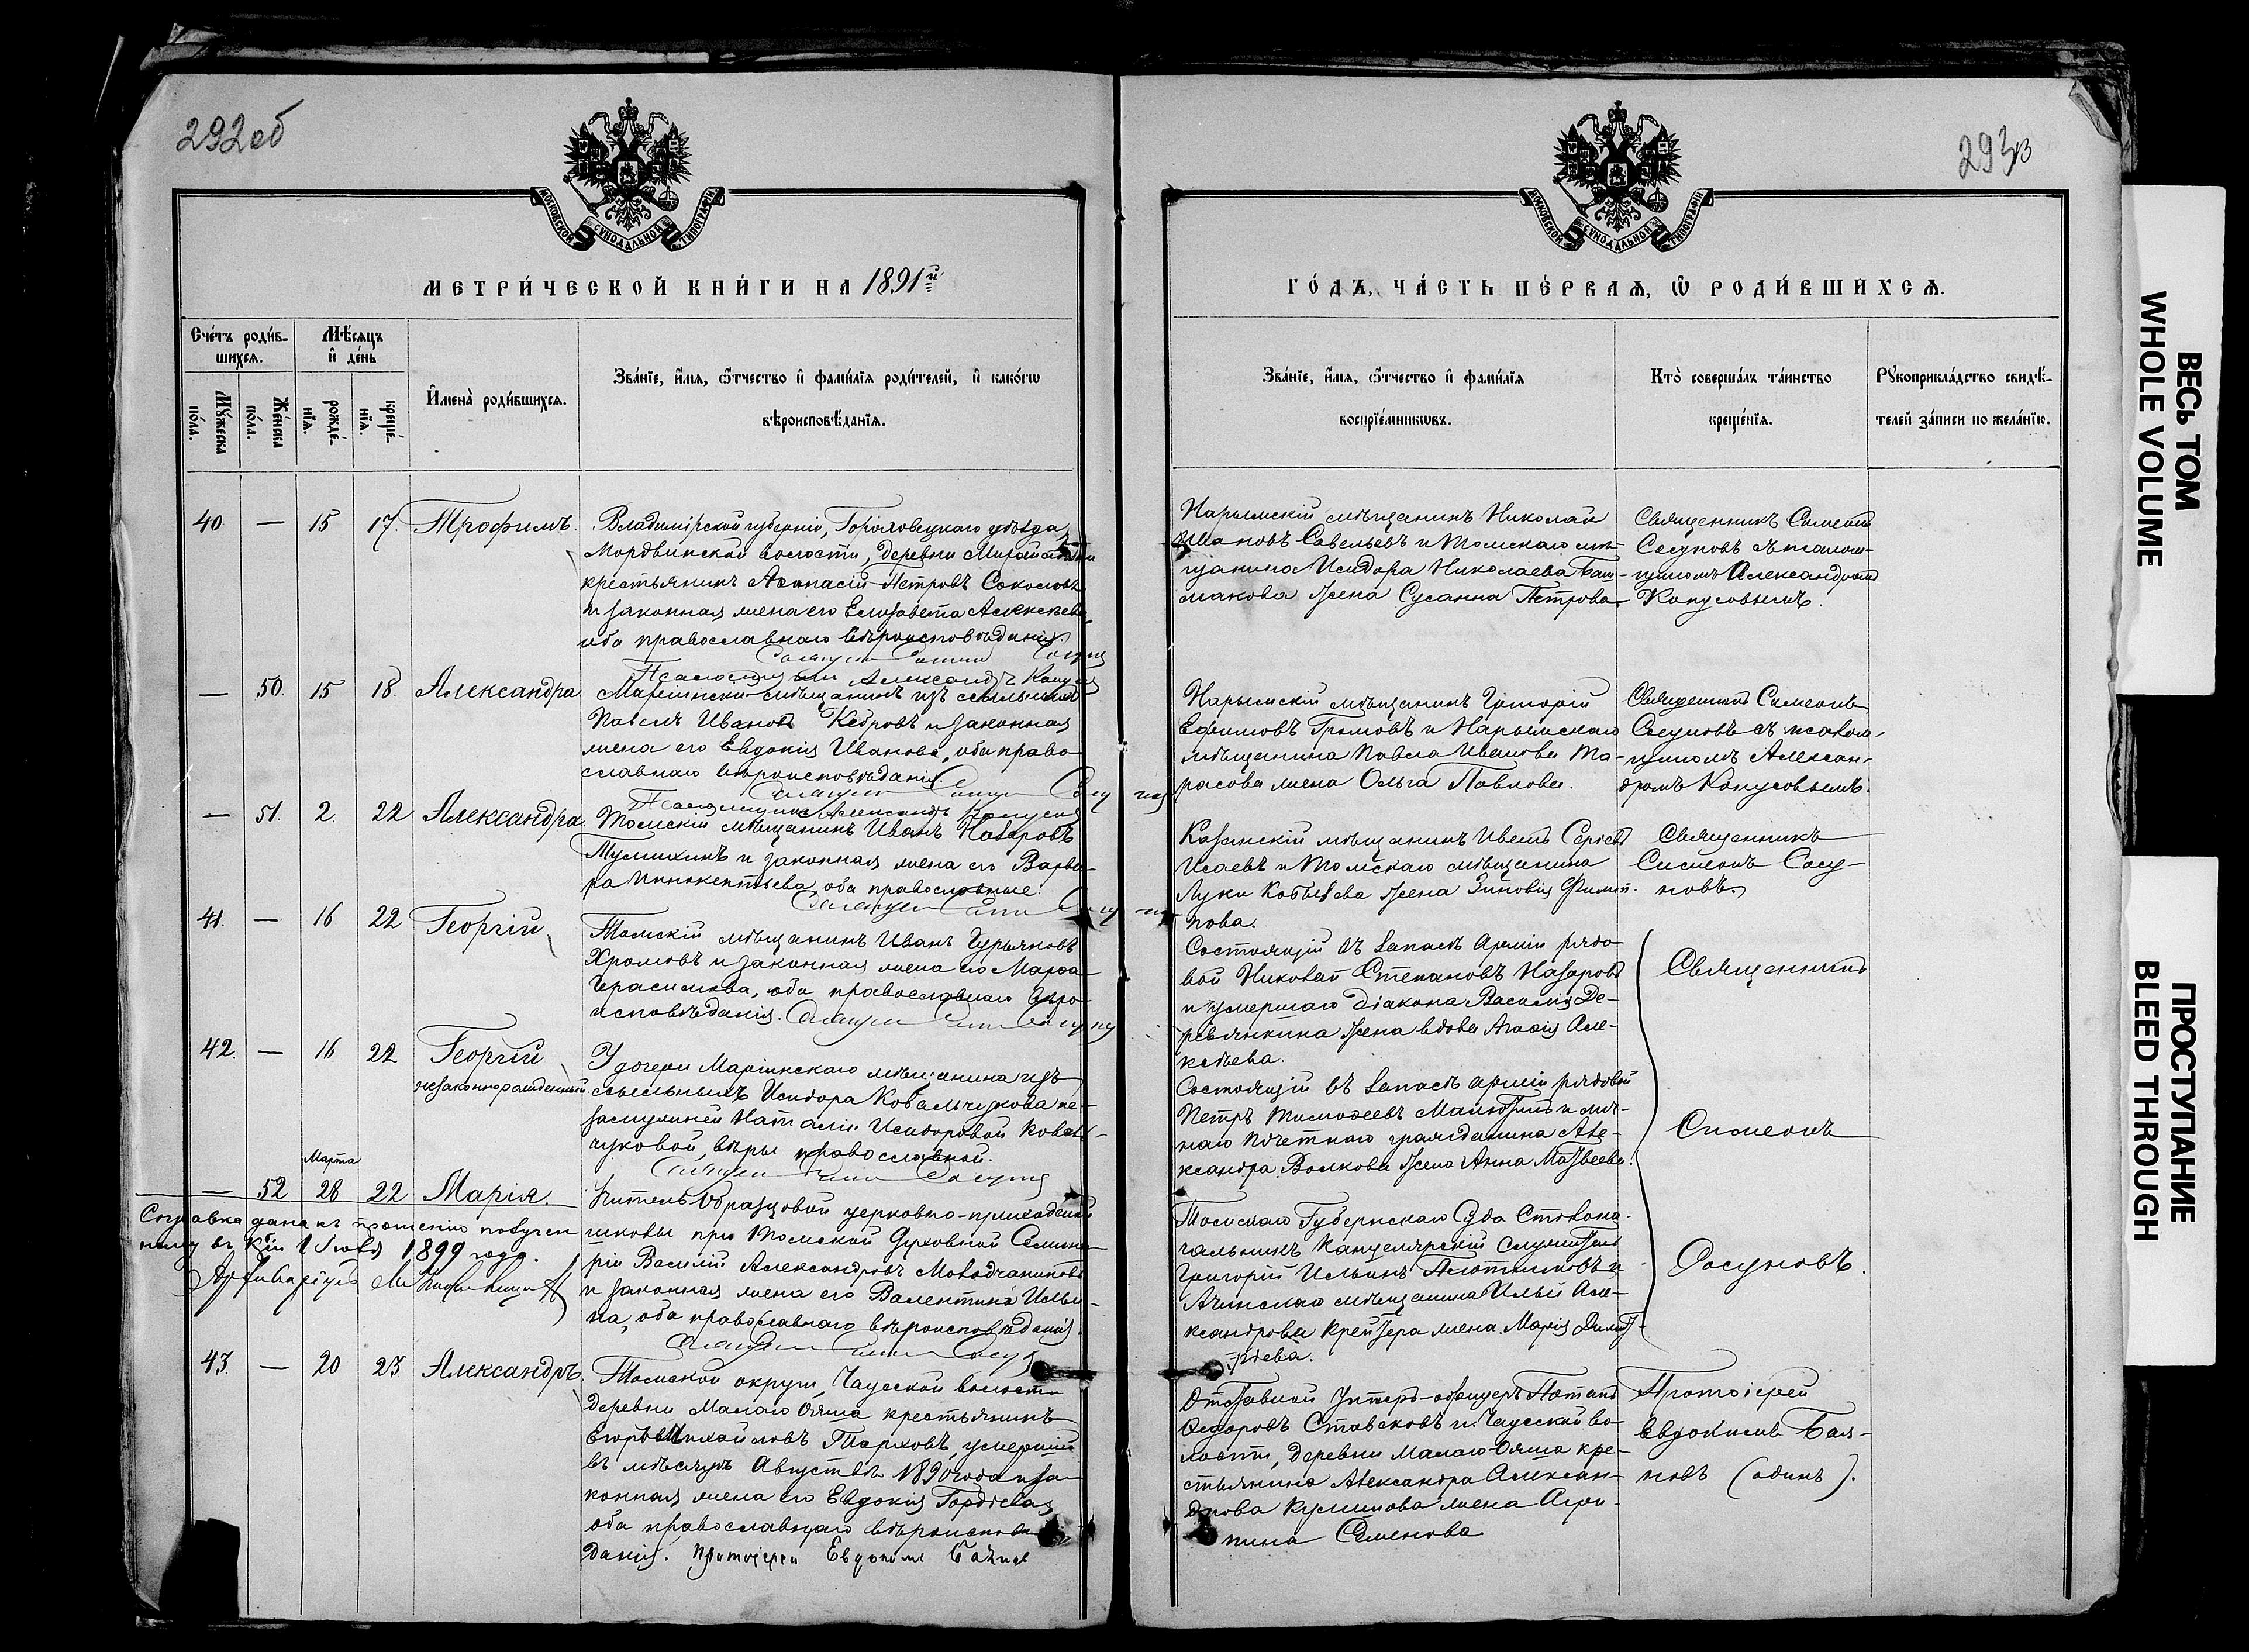 292об
293
МОСКОВСКОЙ СѴНОДАЛЬНОЙ ТИПОГРАФІИ
МОСКОВСКОЙ СѴНОДАЛЬНОЙ ТИПОГРАФІИ
МЕТРИ́ЧЕСКОЙ КНИ́ГИ НА 1891й
ГО́ДЪ, ЧА́СТЬ ПЕ́РВАѦ, Ѽ РОДИ́ВШИХСѦ.
Сче́тъ роди́в-
шихсѧ.
Мѣ́сѧцъ
и҆ де́нь
Мꙋ́жеска
по́ла.
Же́нска
по́ла.
рожде́-
нїѧ.
креще́-
нїѧ.
И҆мена̀ роди́вшихсѧ.
Зва́нїе, и҆́мѧ, ѻ҆́тчество и҆ фами́лїѧ роди́телей, и҆ како́гѡ
вѣроисповѣ́данїѧ.
Зва́нїе, и҆́мѧ, ѻ҆́тчество и҆ фами́лїѧ
воспрїе́мникѡвъ.
Кто̀ соверша́лъ та́инство
креще́нїѧ.
Рꙋкоприкла́дство свидѣ́-
телей за́писи по жела́нїю.
40 — 15 17. Трофимъ.
Владимірской губерніи, Гороховецкаго уѣзда,
Мордвинской волости, деревни
крестьянинъ Аѳанасій Петровъ Соколовъ
и законная жена его Елизавета Алексѣева,
оба православнаго вѣроисповѣданія.
Нарымскій мѣщанинъ Николай
Ивановъ Савельевъ и Томскаго мѣ-
щанина Исидора Николаева Баш-
макова жена Сусанна Петрова.
Священникъ Симеонъ
Сосуновъ съ псалом-
щикомъ Александромъ
Капусовымъ.
— 50. 15 18. Александра
Псаломщикъ Александръ
Маріинскій мѣщанинъ изъ ссыльныхъ
Павелъ Ивановъ Кедровъ и законная
жена его Евдокія Иванова, оба право-
славнаго вѣроисповѣданія.
Нарымскій мѣщанинъ Григорій
Ефимовъ Громовъ и Нарымскаго
мѣщанина Павла Иванова Та-
расова жена Ольга Павлова.
Священникъ Симеонъ
Сосуновъ съ псалом-
щикомъ Алексан-
дромъ Капусовымъ.
— 51. 2. 22 Александра.
Псаломщикъ Александръ
Томскій мѣщанинъ Иванъ Назаровъ
и законная жена его Варва-
ра Иннокентьева, оба православные.
Казанскій мѣщанинъ
Исаевъ и Томскаго мѣщанина
Луки жена Зиновія Филип-
пова.
Священникъ
Симеонъ Сосу-
новъ.
41. — 16 22 Георгій
Томскій мѣщанинъ Иванъ Гурьяновъ
Хромовъ и законная жена его Марѳа
Герасимова, оба православнаго вѣро-
исповѣданія.
Состоящій въ запасѣ арміи рядо-
вой Николай Степановъ Назаровъ
и умершаго діакона Василія Де-
ревянкина жена вдова Агафія Але-
ксѣева.
Священникъ
42. — 16 22 Георгій
незаконнорожденный
У дочери Маріинскаго мѣщанина изъ
ссыльныхъ Исидора Ковальчукова не-
замужней Наталіи Исидоровой Коваль-
чуковой, вѣры православной.
Состоящій въ запасѣ арміи рядовой
Петръ Тимоѳеевъ и лич-
наго почетнаго гражданина Але-
ксандра Волкова жена Анна Матвѣева.
Симеонъ
Марта
— 52 28 22 Марія.
Учитель образцовой церковно-приходской
школы при Томской Духовной Семина-
ріи Василій Александровъ Молодчаниновъ
и законная жена его Валентина Ильи-
на, оба православнаго вѣроисповѣданія.
Справка дана къ прошенію получен-
ному въ 1899 года.
Томскаго Губернскаго Суда Столона-
чальникъ канцелярскій служитель
Григорій Ильинъ Плотниковъ и
Ачинскаго мѣщанина Ильи Але-
ксандрова Крейтера жена Марія Димит-
ріева.
Сосуновъ.
43. — 20 23 Александръ.
Томскаго округа, Чаусской волости
деревни Малаго Ояша крестьянинъ
Егоръ Михайловъ Тарховъ, умершій
въ мѣсяцѣ Августѣ 1890 года и за-
конная жена его Евдокія Гордѣева,
оба православнаго вѣроиспове-
данія. Протоіерей Евдокимъ
Отставной Унтеръ-офицеръ Потапъ
Ѳедоровъ Ставсковъ и Чаусской во-
лости, деревни Малаго-Ояша кре-
стьянина Александра Алексан-
дрова жена Агри-
пина Семенова
Протоіерей
Евдокимъ Бая-
новъ (одинъ).
ВЕСЬ ТОМ
WHOLE VOLUME
ПРОСТУПАНИЕ
BLEED THROUGH